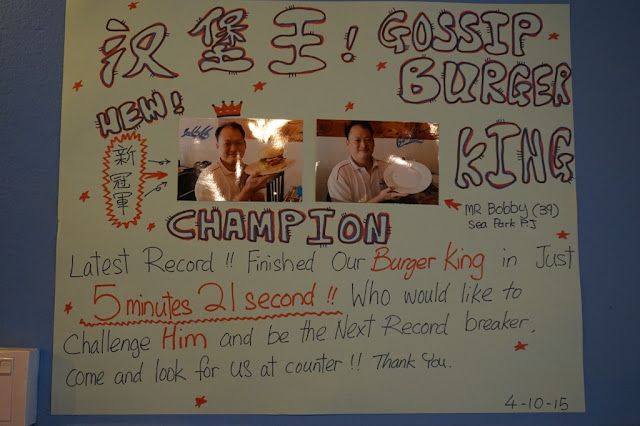 汉堡王! GOSSIP
BURGER
KING
NEW!
新冠軍
CHAMPION
MR BObby (39)
Sea Park PJ
Latest Record!! Finished Our Burger King in Just
5 minutes 21 second!! Who would like to
Challenge Him and be the Next Record breaker,
come and look for us at counter!! Thank You.
4-10-15